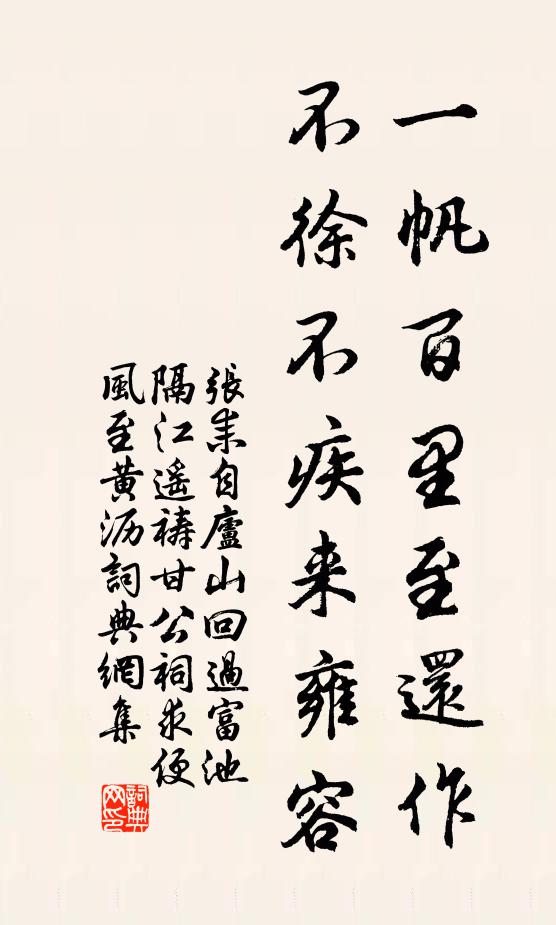 一帆百里至還作
不徐不疾来雍容
張耒自廬山回過富池
隔江遥禱甘公祠求便
風至黄沥詞典網集
詞典网印